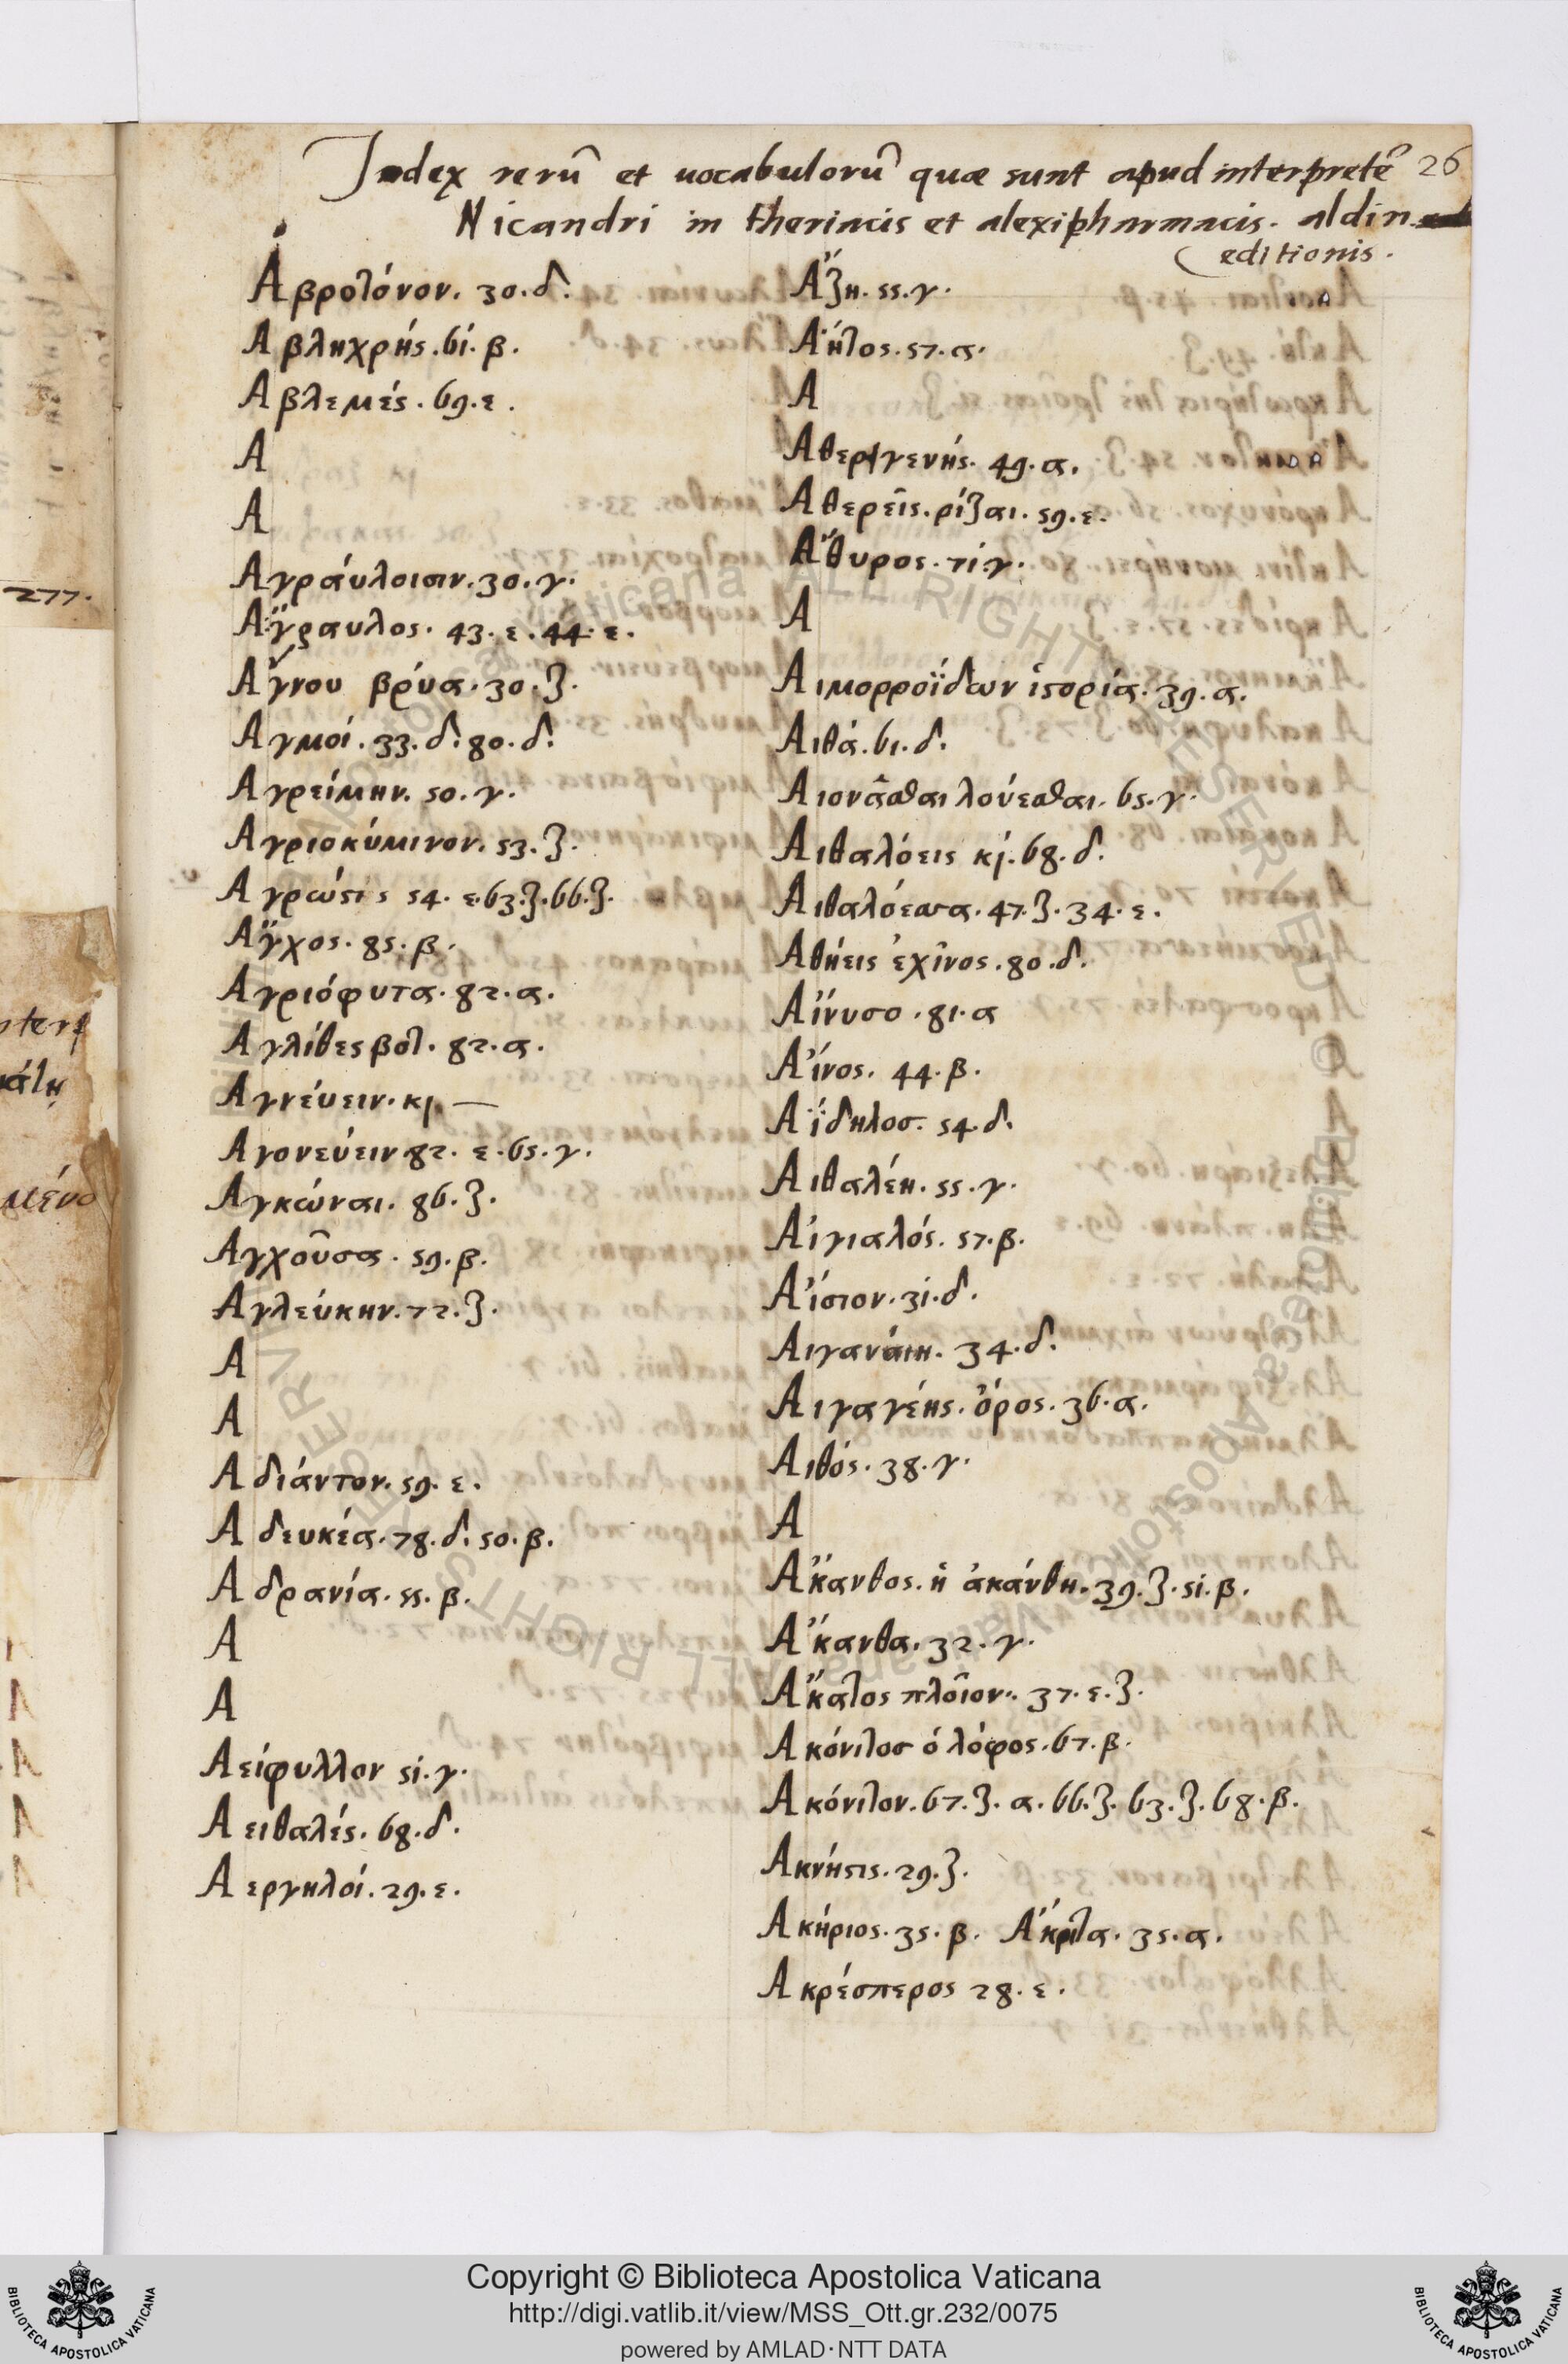 Index rerũ et uocabulorũ quæ sunt apud interpretẽ 26
Nicandri in theriacis et alexipharmacis. aldin
editionis.
Αβροτόνον. 30. δ.
Αβληχρής. 61. β.
Αβλεμές. 69. ε.
Α
Α
Αγράυλοισιν. 30. γ.
Αʹγραυλος. 43. ε. 44. ε.
Αγνου βρύα. 30. ζ.
Αγμοί. 33. δ. 80. δ.
Αγρείμην. 50. γ.
Αγριοκύμινον. 53. ζ.
Αγρώστις 54. ε. 63. ζ. 66. ζ.
Αʹγχος. 85. β.
Αγριόφυτα. 82. α.
Αγλίθες βοτ. 82. α.
Αγνέυειν. κ). —
Αγονεύειν 82. ε. 65. γ.
Αγκώναι. 86. ζ.
Αγχοῦσα. 59. β.
Αγλεύκην. 72. ζ.
Α
Α
Αδιάντον. 59. ε.
Αδευκέα. 78. δ. 50. β.
Αδρανία. 55. β.
Α
Α
Αείφυλλον 51. γ.
Αειθαλές. 68. δ.
Αεργηλοί. 29. ε.
Αʹζη. 55. γ.
Αήτος. 57. α.
Α
Αθερηγενής. 49. α.
Αθερεῖς. ρίζαι. 59. ε.
Αʹθυρος. 71. γ.
Α
Αιμορροϊδων ἱστορία. 39. α.
Αιθά. 61. δ.
Αιονᾶσθαι λούεσθαι. 65. γ.
Αιθαλόεις κ). 68. δ.
Αιθαλόεσσα. 47. ζ. 34. ε.
Αθήεις ἐχῖνος. 80. δ.
Αἴνυσο. 81. α
Αἴνος. 44. β.
Αΐδηλοσ. 54. δ.
Αιθαλέη. 55. γ.
Αἰγιαλός. 57. β.
Αἴστον. 31. δ.
Αιγανέη. 34. δ.
Αιγαγέης. ὄρος. 36. α.
Αιθός. 38. γ.
Α
Αʹκανθος. ἡ ἀκάνθη. 39. ζ. 51. β.
Αʹκανθα. 32. γ.
Αʹκατος πλοῖον. 37. ε. ζ.
Ακόνιτοσ ὁ λόφος. 67. β.
Ακόνιτον. 67. ζ. α. 66. ζ. 63. ζ. 68. β.
Ακνήστις. 29. ζ.
Ακήριος. 35. β. Αʹκριτα. 35. α.
Ακρέσπερος 28. ε.
277.
Copyright © Biblioteca Apostolica Vaticana
http://digi.vatlib.it/view/MSS_Ott.gr.232/0075
powered by AMLAD·NTT DATA
BIBLIOTECA APOSTOLICA VATICANA
BIBLIOTECA APOSTOLICA VATICANA